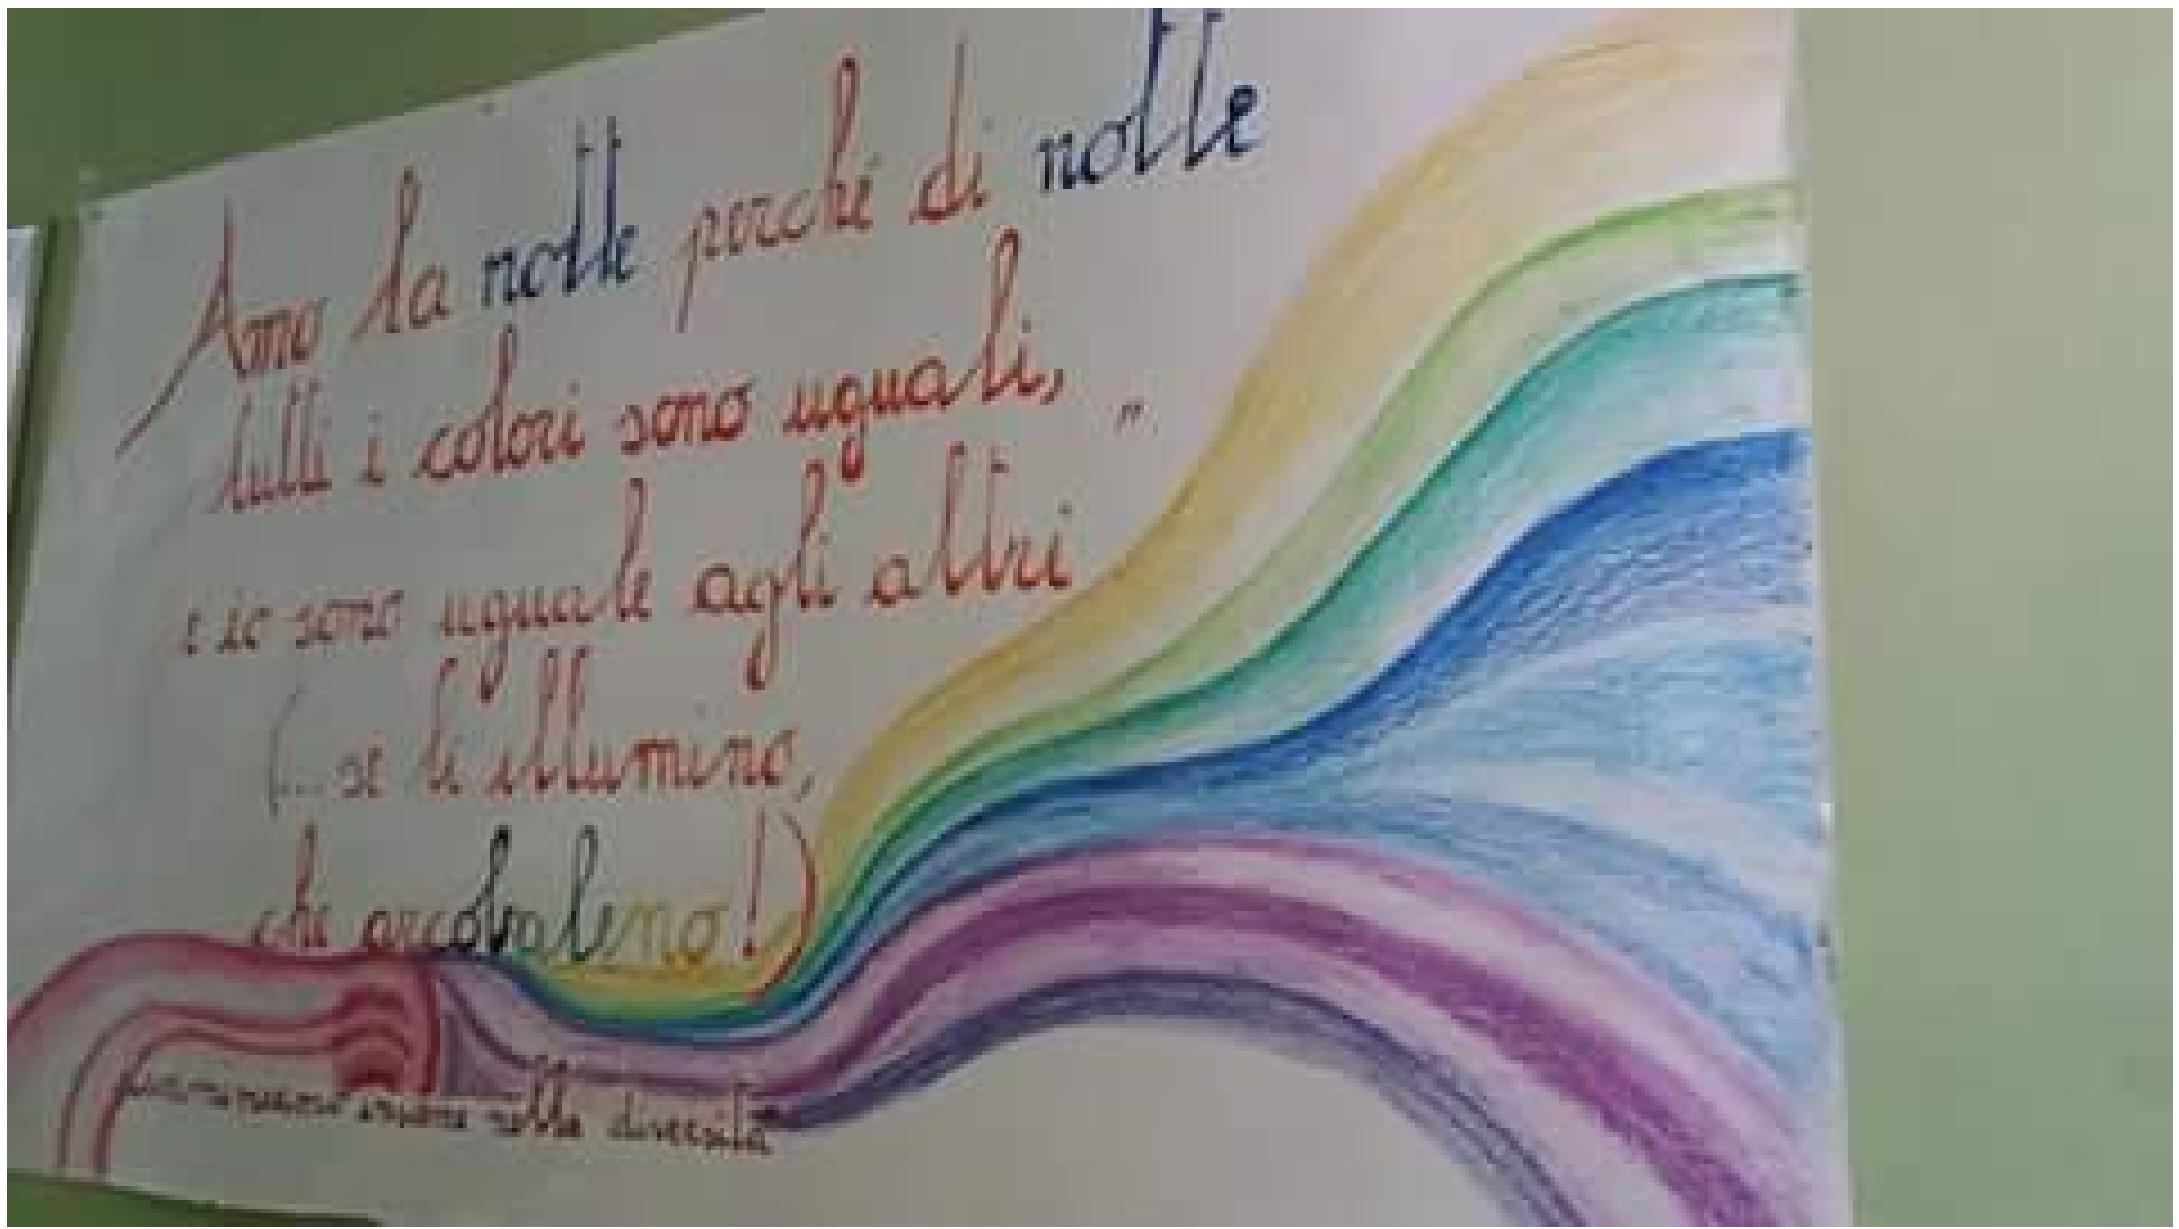 Amo la notte perché di notte
tutti i colori sono uguali,
e io sono uguale agli altri "
(... se li illumino,
che arcobaleno!)
insieme nella diversità